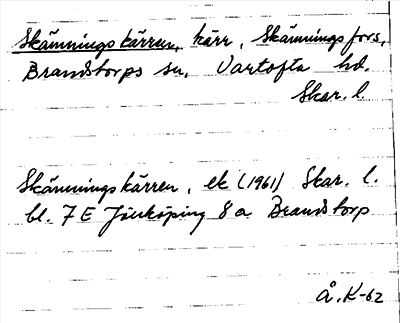 Skämningskärren, kärr, Skämningsfors,
Brandstorps sn, Vartofta hd.
Skar. l.
Skämningskärren, ek (1961) Skar. l.
bl. 7 E Jönköping 8 a Brandstorp
Å. K-62